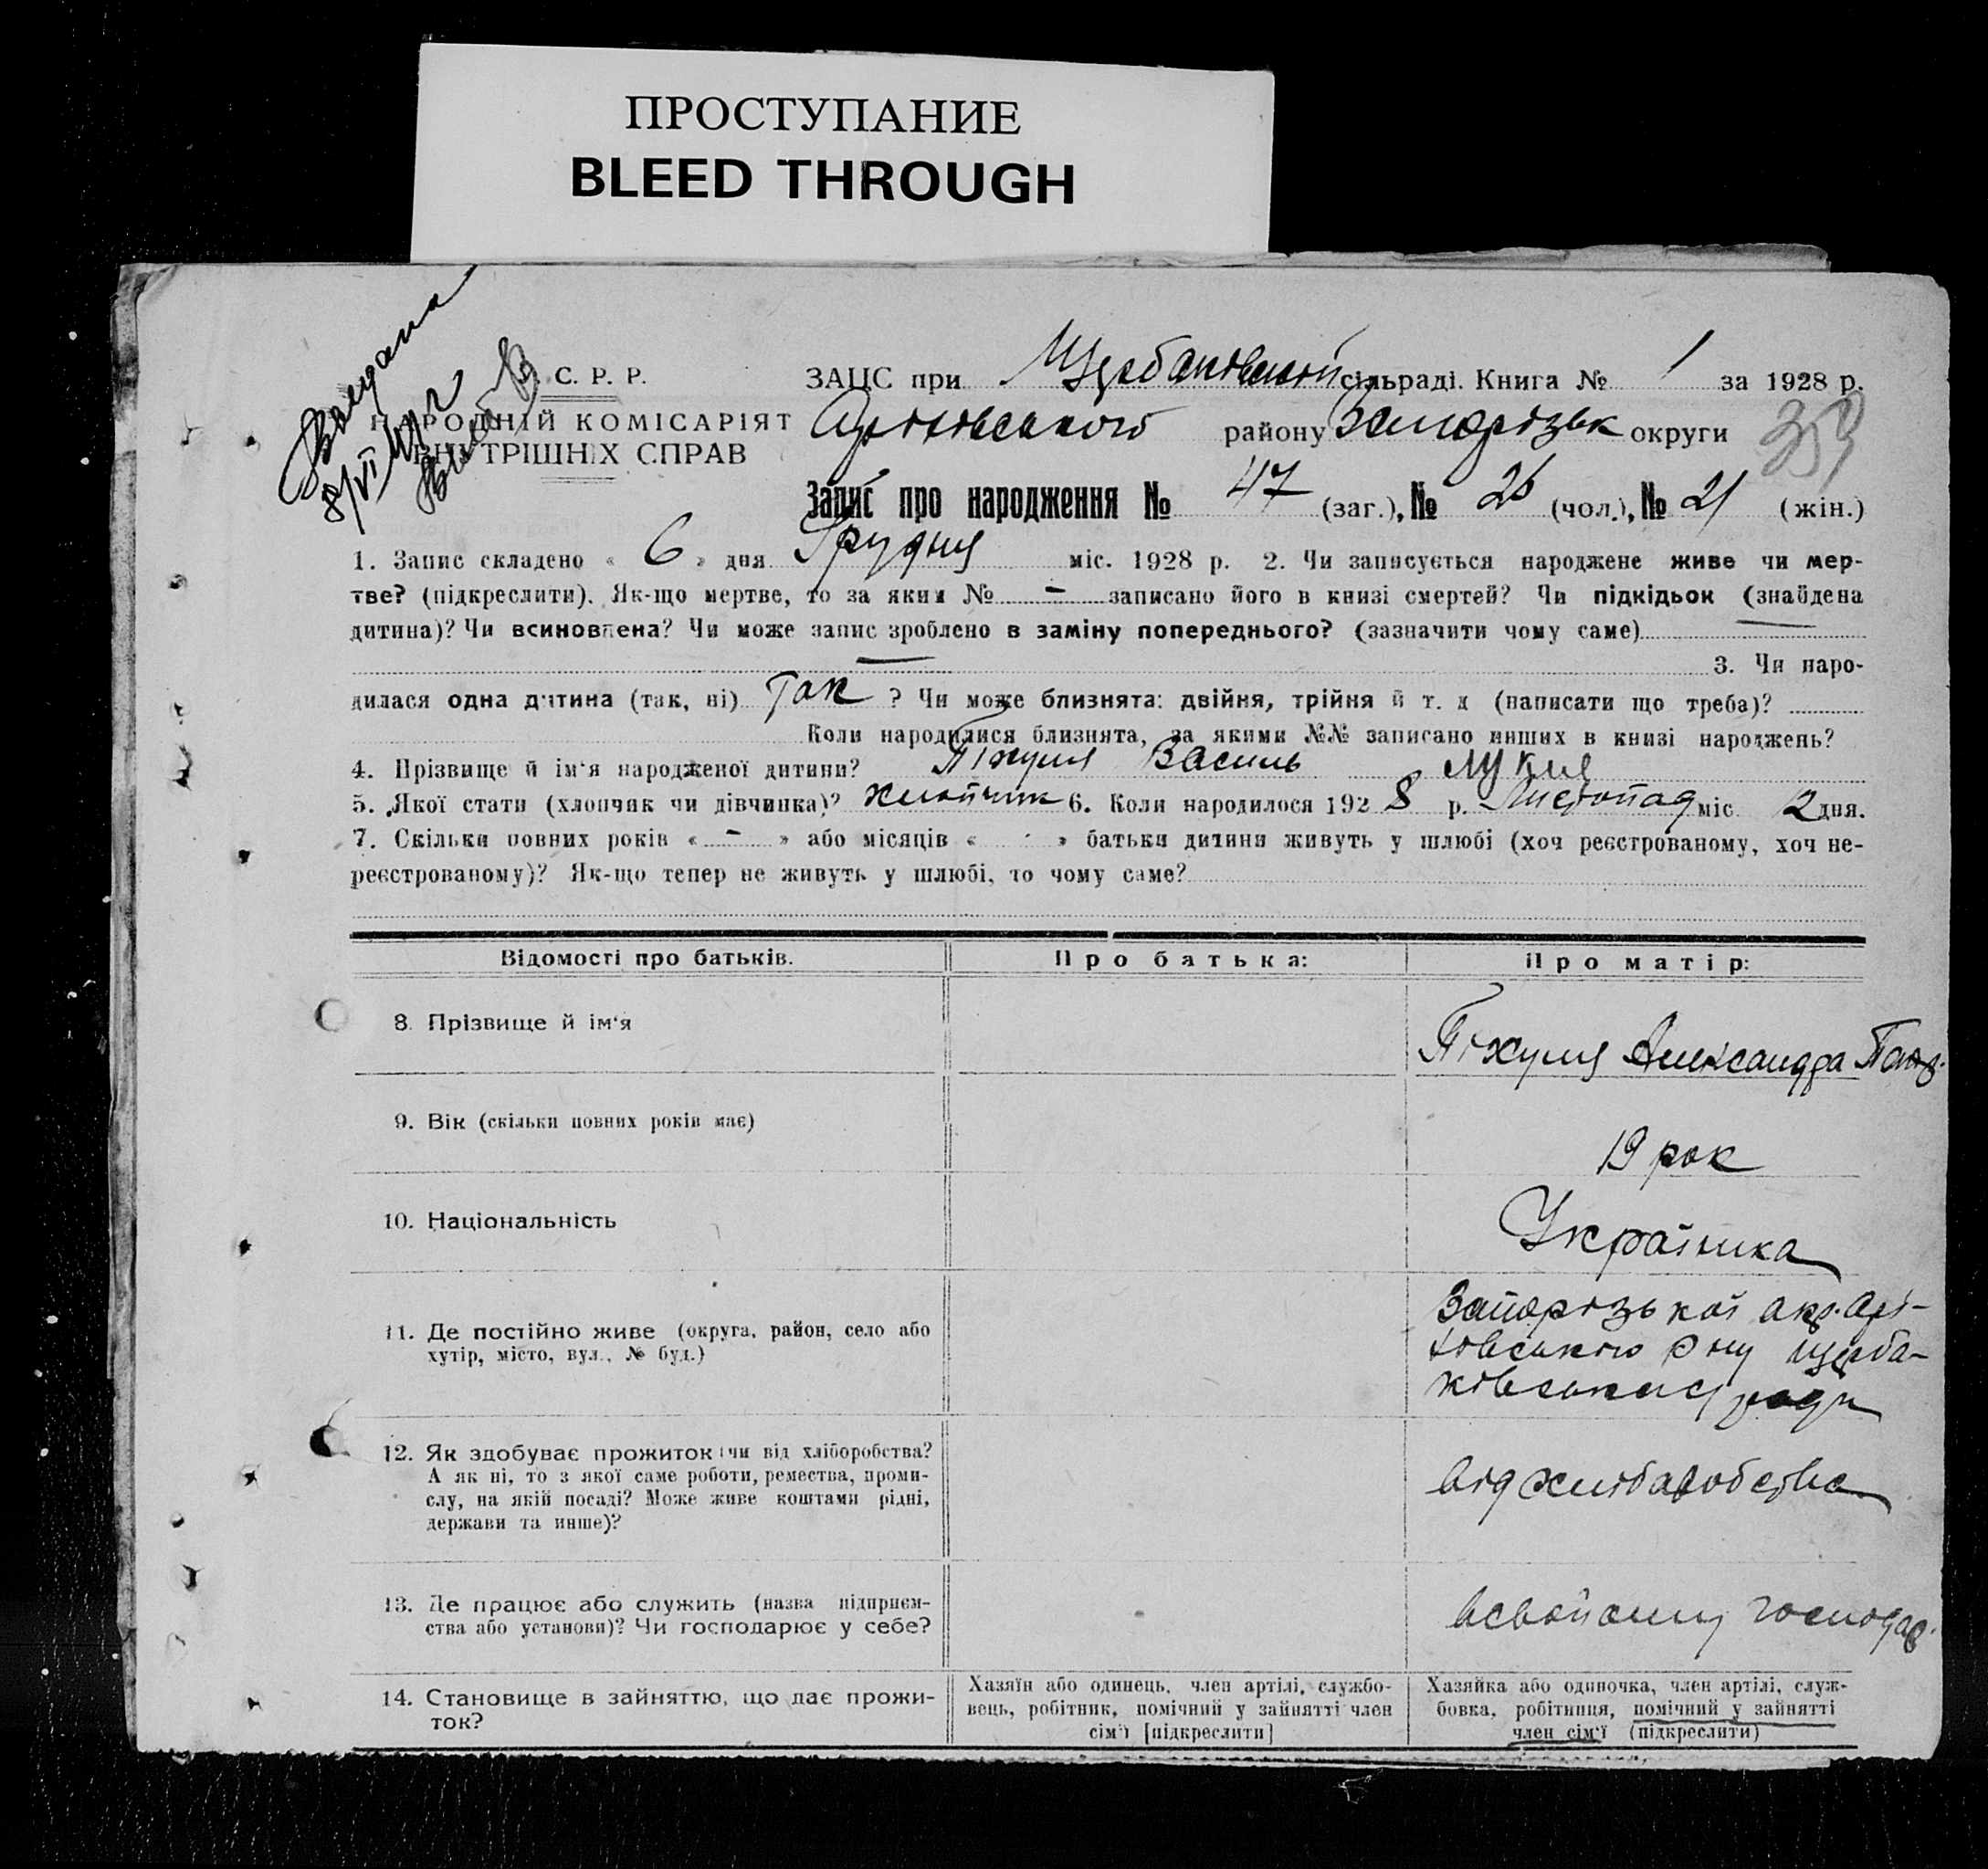 ПРОСТУПАНИЕ
BLEED THROUGH
С. Р. Р.
НАРОДНІЙ КОМІСАРІЯТ
ВНУТРІШНІХ СПРАВ
ЗАЦС при Щербаковской сільраді. Книга № 1 за 1928 р.
району Запорізьк округи
Запис про народження № 47 (заг.), № 26 (чол.), № 21 (жін.)
1. Запис складено « 6 » дня Грудня міс. 1928 р. 2. Чи записується народжене живе чи мер-
тве? (підкреслити). Як-що мертве, то за яким № - записано його в книзі смертей? Чи підкідьок (знайдена
дитина)? Чи всиновлена? Чи може запис зроблено в заміну попереднього? (зазначити чому саме) —
— 3. Чи наро-
дилася одна дитина (так, ні) Так ? Чи може близнята: двійня, трійня й т. д (написати що треба)?
Коли народилися близнята, за якими №№ записано инших в книзі народжень?
4. Прізвище й ім'я народженої дитини? Піхуля Василь
5. Якої стати (хлопчик чи дівчинка)? хлопчик 6. Коли народилося 1928 р. Листопад міс. 2 дня.
7. Скільки повних років « - » або місяців « » батьки дитини живуть у шлюбі (хоч реєстрованому, хоч не-
реєстрованому)? Як-що тепер не живуть у шлюбі, то чому саме?
Відомості про батьків. Про батька: Про матір:
8. Прізвище й ім'я Піхуля Александра
9. Вік (скільки повних років має) 19 рок
10. Національність Українка
11. Де постійно живе (округа, район, село або
хутір, місто, вул., № буд.)
Запорізької окр. Орі-
хівського р ну Щерба-
ківської ради
12. Як здобуває прожиток (чи від хліборобства?
А як ні, то з якої саме роботи, ремества, проми-
слу, на якій посаді? Може живе коштами рідні,
держави та инше)?
від хліборобства
13. Де працює або служить (назва підприєм-
ства або установи)? Чи господарює у себе?
всвойому господар.
14. Становище в зайняттю, що дає прожи-
ток?
Хазяїн або одинець, член артілі, службо-
вець, робітник, помічний у зайнятті член
сім'ї [підкреслити]
Хазяйка або одиночка, член артілі, служ-
бовка, робітниця, помічний у зайнятті
член сім'ї (підкреслити)